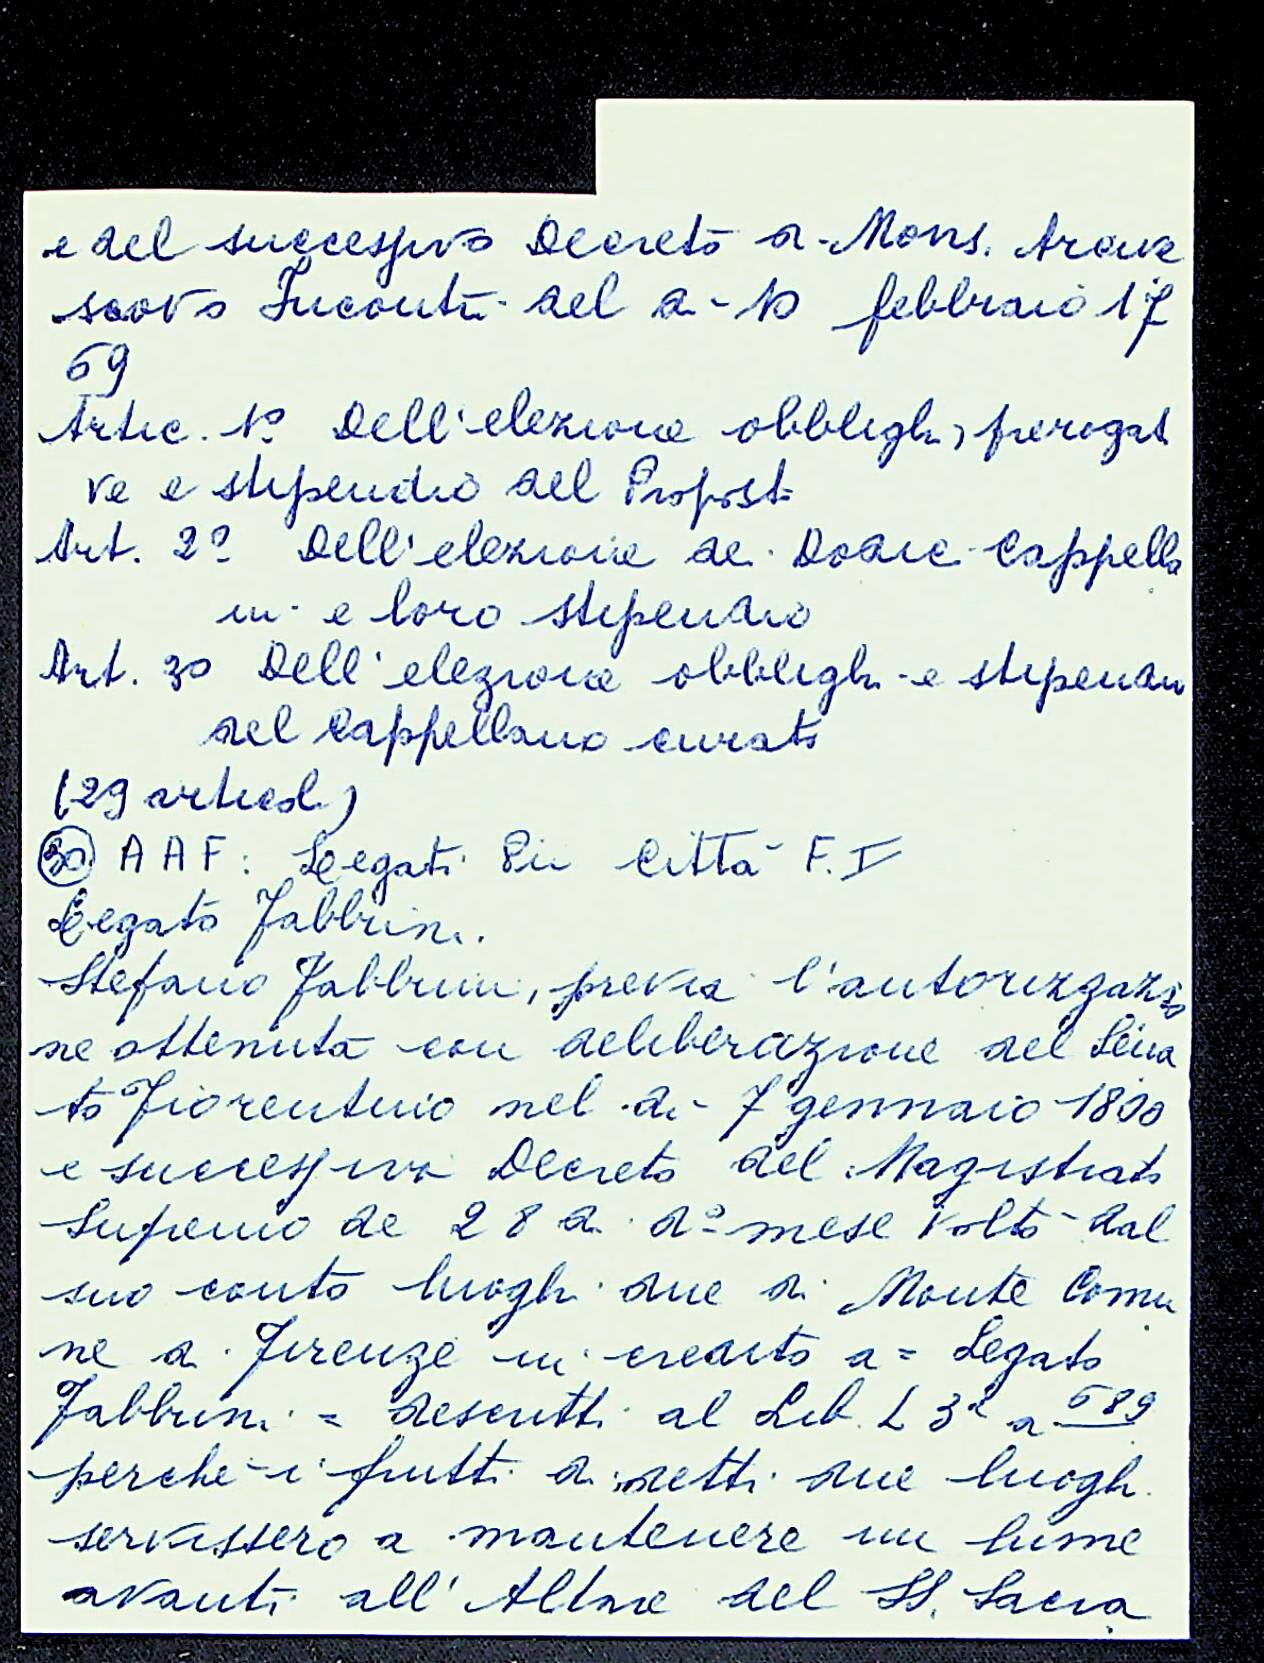 e del successivo Decreto di Mons. Arcive
scovo Incontri del dì 10 febbraio 17
69
Artic. 1° Dell'elezione obblighi, prerogati
ve e stipendio del Proposto
Art. 2° Dell'elezione dei Dodici Cappella
ni e loro stipendio
Art. 3° Dell'elezione obblighi e stipendio
del Cappellano curato
(29 articoli)
30 AAF: Legati Pii Città F. I
Legato Fabbrini.
Stefano Fabbrini, previa l'autorizzazio
ne ottenuta con deliberazione del Sena
to Fiorentino nel dì 7 gennaio 1800
e successivo Decreto del Magistrato
Supremo de 28 di d° mese voltò dal
suo conto luoghi due di Monte Comu
ne di Firenze in credito a = Legato
Fabbrini = descritti al Lib. L 3° a 689
perché i frutti di detti due luoghi
servissero a mantenere un lume
avanti all'Altare del SS. Sacra